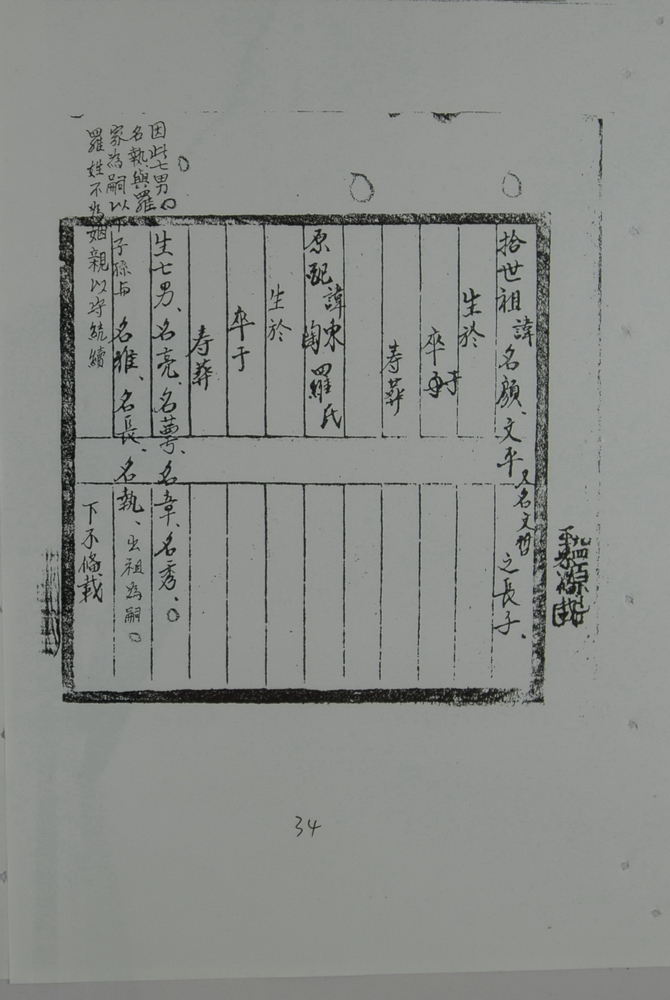 拾世祖諱名顏、文平又名文哲之長子、
生於
卒于
寿葬
原配諱東陶羅氏
生於
卒于
寿葬
生七男、名亮、名萼、名章、名秀、
名雅、名長、名執、出祖為嗣。
下不俻載
因此七男
名執與羅
家為嗣以下子孫与
羅姓不为姻親以守統續
34